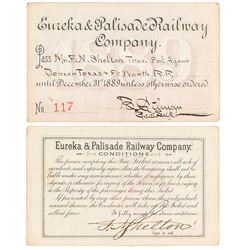 Eureka & Palisade Railway
Company.
Pass Mr. F. N. Shelton Trav. Frt. Agent
Denver Texas & Ft. Worth R.R.
until December 31st 1889 unless otherwise ordered.
No 117
Eureka & Palisade Railway Company.
CONDITIONS.
The person accepting this Free Ticket assumes all risk of
accidents, and expressly agrees that the Company shall not be
liable under any circumstances, whether of negligence by their
agents, or otherwise, for injury to the Person, or for
to the Property of the passenger using this Ticket.
If presented by any other person than the individual
named, the Conductor will take up this Ticket and
collect fare.
I fully accept the above conditions.
F. N. Shelton